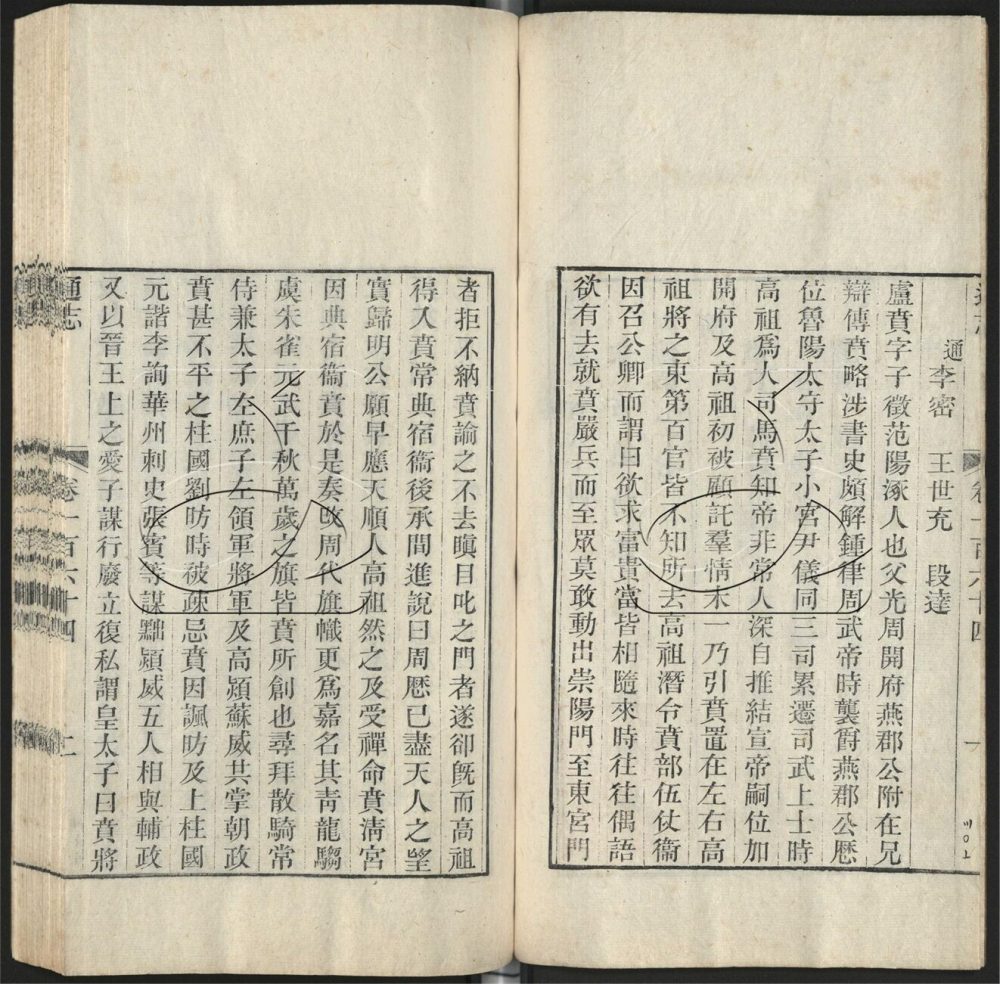 通志 卷一百六十四 一
通李密 王世充 段達
盧賁字子徵范陽涿人也父光周開府燕郡公附在兄
辯傳賁略涉書史頗解鍾律周武帝時襲爵燕郡公歷
位魯陽太守太子小宮尹儀同三司累遷司武上士時
高祖爲大司馬賁知帝非常人深自推結宣帝嗣位加
開府及高祖初被顧託羣情未一乃引賁置在左右高
祖將之東第百官皆不知所去高祖潛令賁部伍仗衞
因召公卿而謂曰欲求富貴當皆相隨來時往往偶語
欲有去就賁嚴兵而至眾莫敢動出崇陽門至東宮門
者拒不納賁諭之不去瞋目叱之門者遂卻旣而高祖
得入賁常典宿衞後承間進說曰周厯已盡天人之望
實歸明公願早應天順人高祖然之及受禪命賁淸宮
因典宿衞賁於是奏改周代旗幟更爲嘉名其靑龍騶
虞朱雀元武千秋萬歲之旗皆賁所創也尋拜散騎常
侍兼太子左庶子左領軍將軍及高熲蘇威共掌朝政
賁甚不平之柱國劉昉時被疎忌賁因諷昉及上柱國
元諧李詢華州刺史張賓等謀黜熲威五人相與輔政
又以晉王上之愛子謀行廢立復私謂皇太子曰賁將
通志 卷一百六十四 二